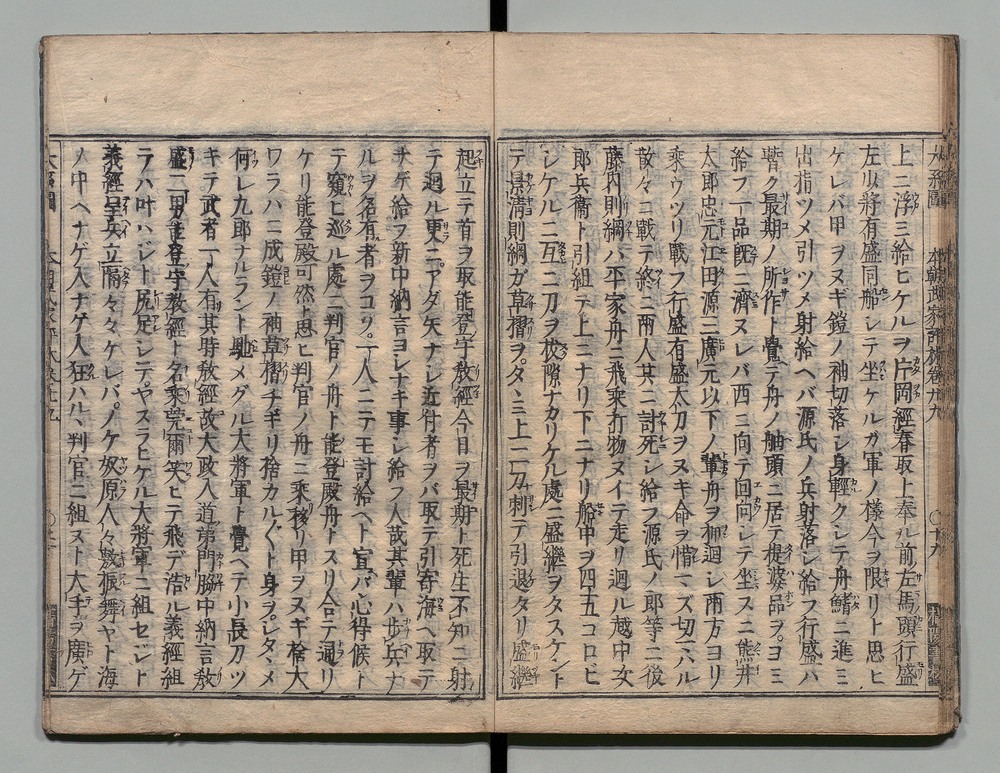 上ニ浮三給ヒケルヲ片岡經春取上奉ル前左馬頭行盛
左少將有盛同船シテ坐ケルガ軍ノ様今ヲ限リト思ヒ
ケレバ甲ヲヌギ鎧ノ袖切落シ身輕クシテ舟鰭ニ進ミ
出指ツメ引ツメ射給ヘバ源氏ノ兵射落シ給フ行盛ハ
暫ク最期ノ所作ト覺ヘテ舟ノ舳頭ニ居テ提婆品ヲヨミ
給フ一品既ニ濟ヌレバ西ニ向テ回向シテ坐スニ熊井
太郎忠元江田源三廣元以下ノ輩舟ヲ廻シ兩方ヨリ
乗ウツリ戰フ行盛有盛太刀ヲヌキ命ヲ惜マズ切ハル
散々ニ戰テ終ニ兩人共ニ討死シ給フ源氏ノ郎等ニ後
藤内則綱ハ平家舟ニ飛乘打物ヌイテ走リ廻ル越中次
郎兵衞ト引組テ上ニナリ下ニナリ船中ヲ四五コロビ
シケルニ互ニ刀ヲ拔隙ナカリケル處ニ盛繼ヲタスケント
テ景清則綱ガ草摺ヲタヽミ上二刀刺テ引退タリ盛繼
起立テ首ヲ取能登守敎經今日ヲ最期ト死生不知ニ射
テ廻ル更ニアダ矢ナシ近付者ヲバ取テ引寄海ヘ取テ
ナゲ給フ新中納言ヨシナキ事シ給フ人哉其輩ハ歩兵ナ
ルヲ名有者ヲコソ一人ニテモ討給ヘト宣バ心得候ト
テ窺ヒ巡ル處ニ判官ノ舟ト能登殿舟トスリ合テ通リ
ケリ能登殿可然ト思ヒ判官ノ舟ニ乘移リ甲ヲヌギ捨大
ワラハニ成鎧ノ袖草摺チギリ捨カル〲ト身ヲシタヽメ
何レ九郎ナルラント馳メグル大將軍ト覺ヘテ小長刀ツ
キテ武者一人有其時敎經故大政入道弟門脇中納言敎
盛二男能登守敎經ト名乘莞爾笑ヒテ飛デ浩ル義經組
テハ叶ハジト尻足シテヤスラヒケル大將軍ニ組セジト
義經早兵立隔々々ケレバノケ奴原人々敷振舞ヤト海
ノ中ヘナゲ入ナゲ入狂ハル判官ニ組スト大手ヲ廣ゲ